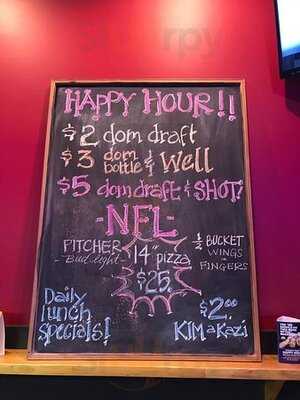 HAPPY HOUR!!
$2 dom draft
$3 dom bottle & Well
$5 dom draft & SHOT!
-NFL-
PITCHER
-Bud Light-
14" pizza
1/2 BUCKET
WINGS
or
FINGERS
$25.
Daily
lunch
Specials!
$2.00
KIMaKazi